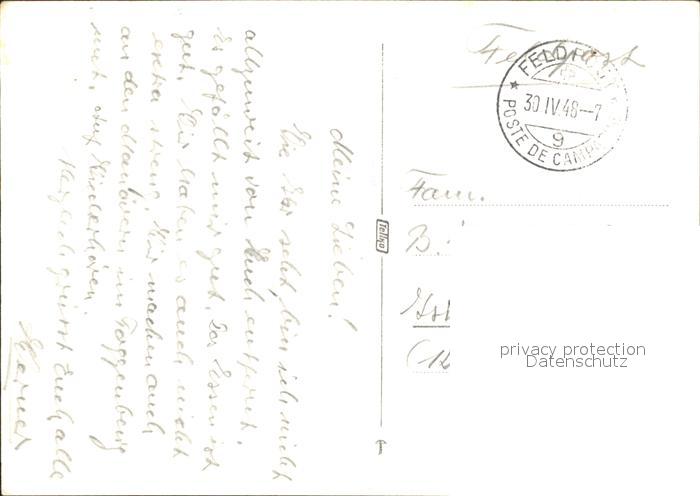 Meine Lieben!
Wie Ihr seht, bin ich nicht
allzuweit von Euch entfernt.
Es gefällt mir gut. Das Essen ist
gut. Wir haben es auch nicht
extra streng. Wir machen auch
an den Manövern im Toggenburg
mit. Auf Wiederhören.
Herzlich grüsst Euch alle
Werner
Feldpost
FELDPOST
30 IV.48–7
9
POSTE DE CAMPAGNE
Fam.
B
(12
Tellko
privacy protection
Datenschutz